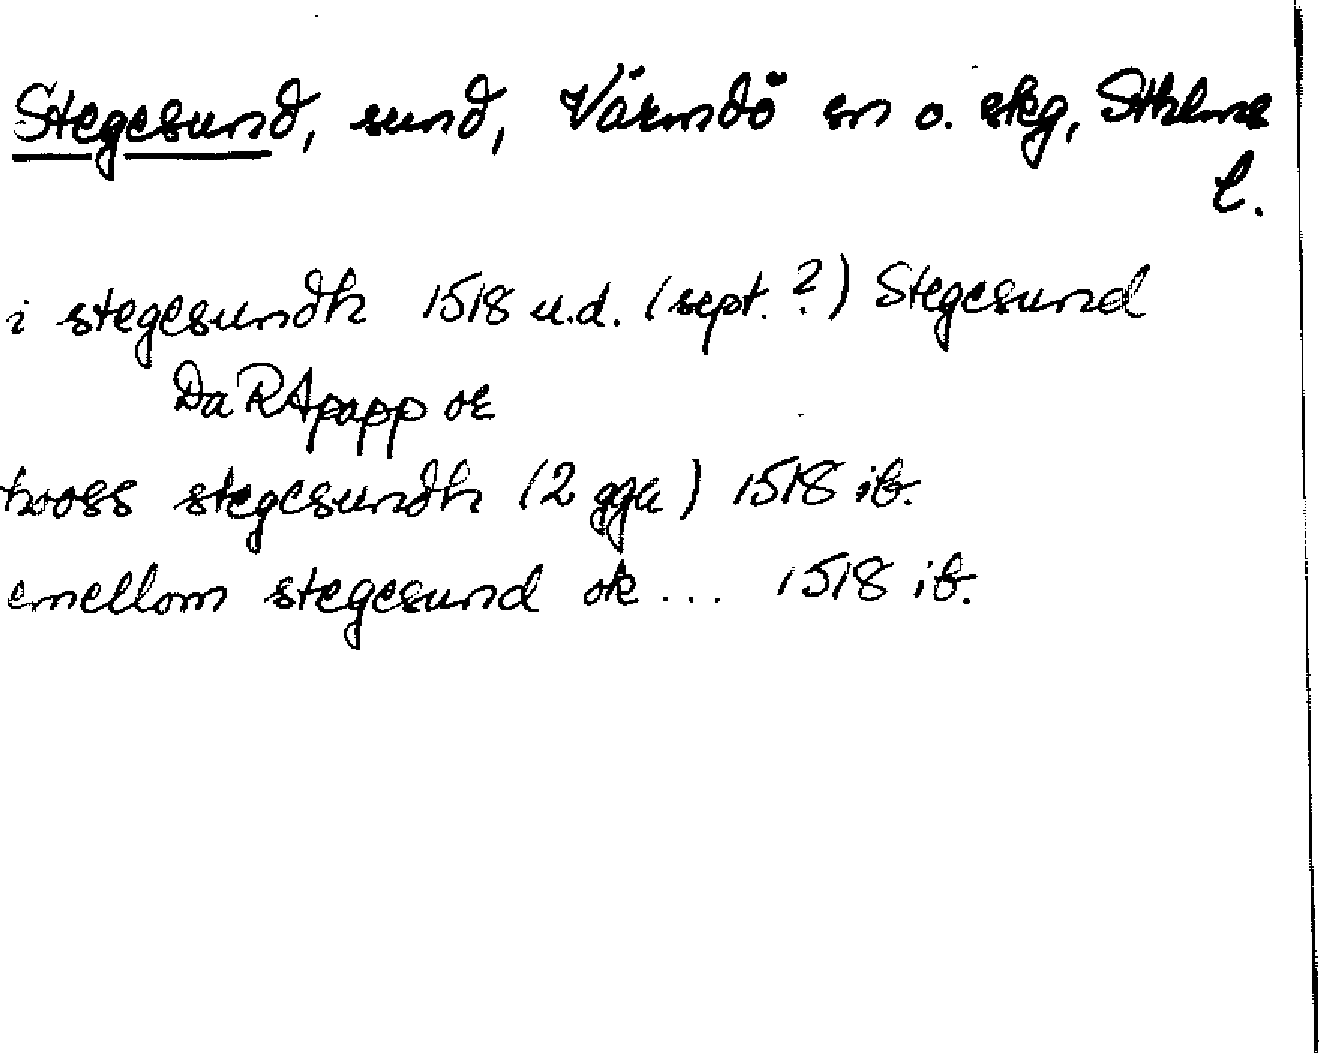 Stegesund, sund, Värmdö sn o. skg, Sthlms
l.
i stegesundh 1518 u.d. (sept. ?) Stegesund
Da RA papp or
hooss stegesundh (2 ggr) 1518 ib.
emellom stegesund ok ... 1518 ib.